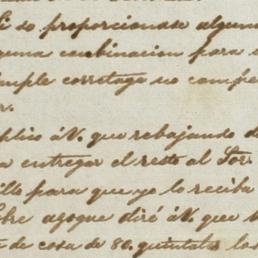 Si se proporcionase alguna
guna combinacion para
imple corretage no compe
r.
plico á V. que rebajando d
a entregar el resto al Sor
illo para que yo lo reciba
obre azogue diré á V. que
de cosa de 80. quintales los